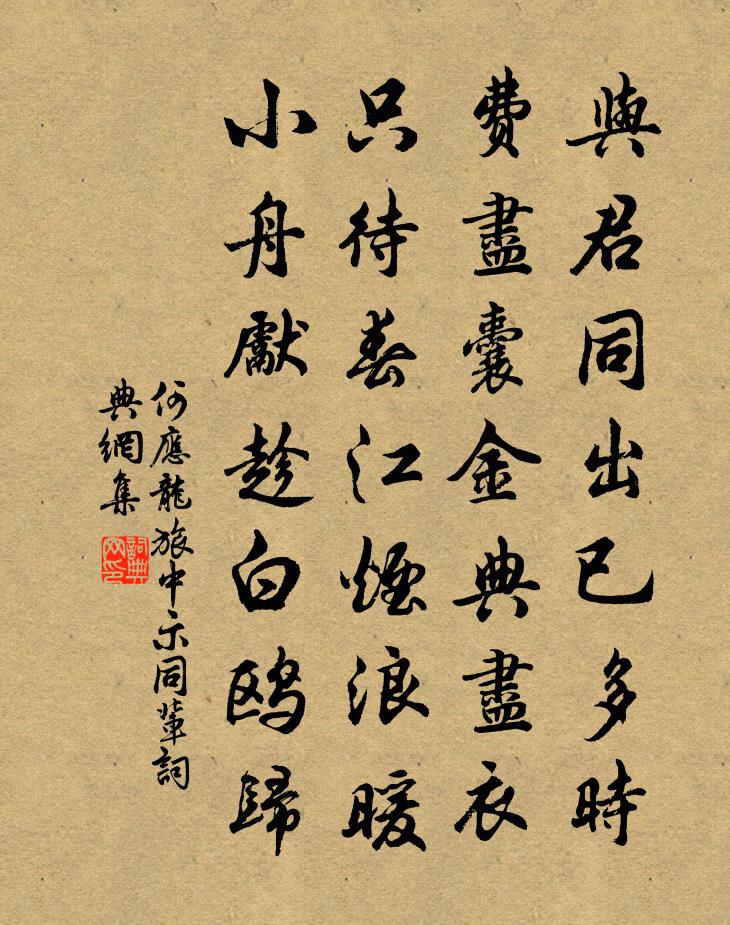 與君同出已多時
費盡囊金典盡衣
只待春江煙浪暖
小舟獻趁白鷗歸
何應龍旅中示同輩詞
典網集
詞典
网印